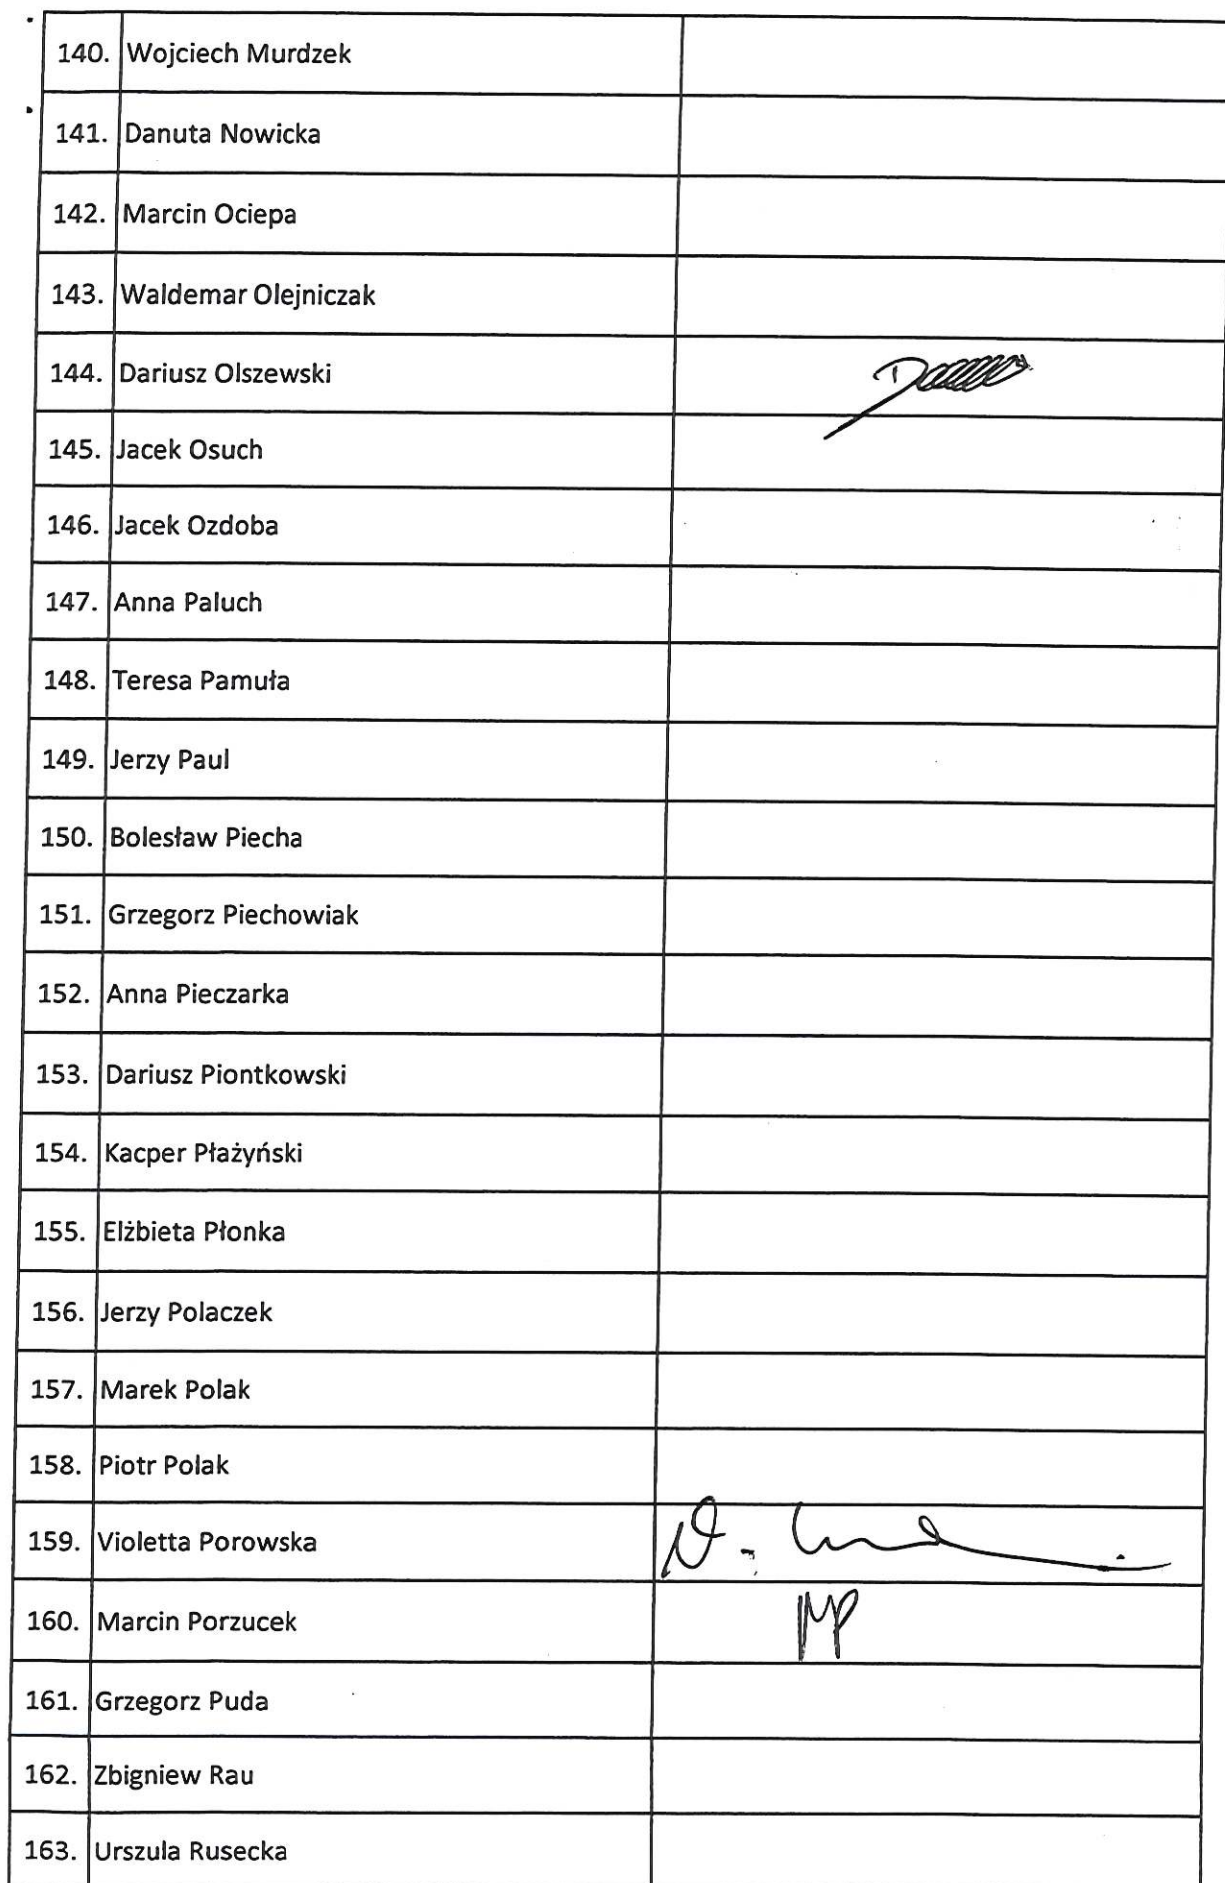 140. Wojciech Murdzek
141. Danuta Nowicka
142. Marcin Ociepa
143. Waldemar Olejniczak
144. Dariusz Olszewski
145. Jacek Osuch
146. Jacek Ozdoba
147. Anna Paluch
148. Teresa Pamuła
149. Jerzy Paul
150. Bolesław Piecha
151. Grzegorz Piechowiak
152. Anna Pieczarka
153. Dariusz Piontkowski
154. Kacper Płażyński
155. Elżbieta Płonka
156. Jerzy Polaczek
157. Marek Polak
158. Piotr Polak
159. Violetta Porowska
160. Marcin Porzucek MP
161. Grzegorz Puda
162. Zbigniew Rau
163. Urszula Rusecka